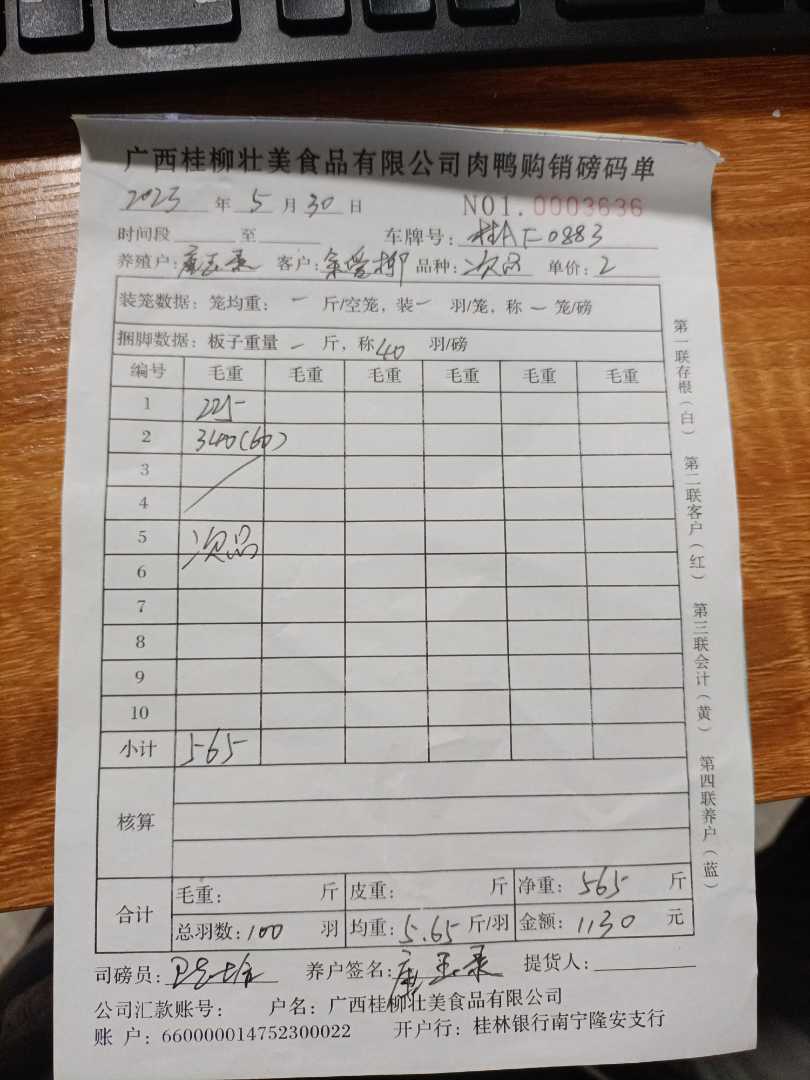 广西桂柳壮美食品有限公司肉鸭购销磅码单
2023 年 5 月 30 日 NO1. 0003636
时间段 至 车牌号: 桂AF0883
养殖户: 客户: 品种: 次品 单价: 2
装笼数据: 笼均重: 一 斤/空笼, 装一 羽/笼, 称 一 笼/磅
捆脚数据: 板子重量 一 斤, 称40 羽/磅
编号 毛重 毛重 毛重 毛重 毛重 毛重
1 225
2 340(60)
3
4
5 次品
6
7
8
9
10
小计 565
核算
合计 毛重: 斤 皮重: 斤 净重: 565 斤
总羽数: 100 羽 均重: 5.65 斤/羽 金额: 1130 元
司磅员: 养户签名: 提货人:
公司汇款账号: 户名: 广西桂柳壮美食品有限公司
账 户: 660000014752300022 开户行: 桂林银行南宁隆安支行
第一联存根(白) 第二联客户(红) 第三联会计(黄) 第四联养户(蓝)